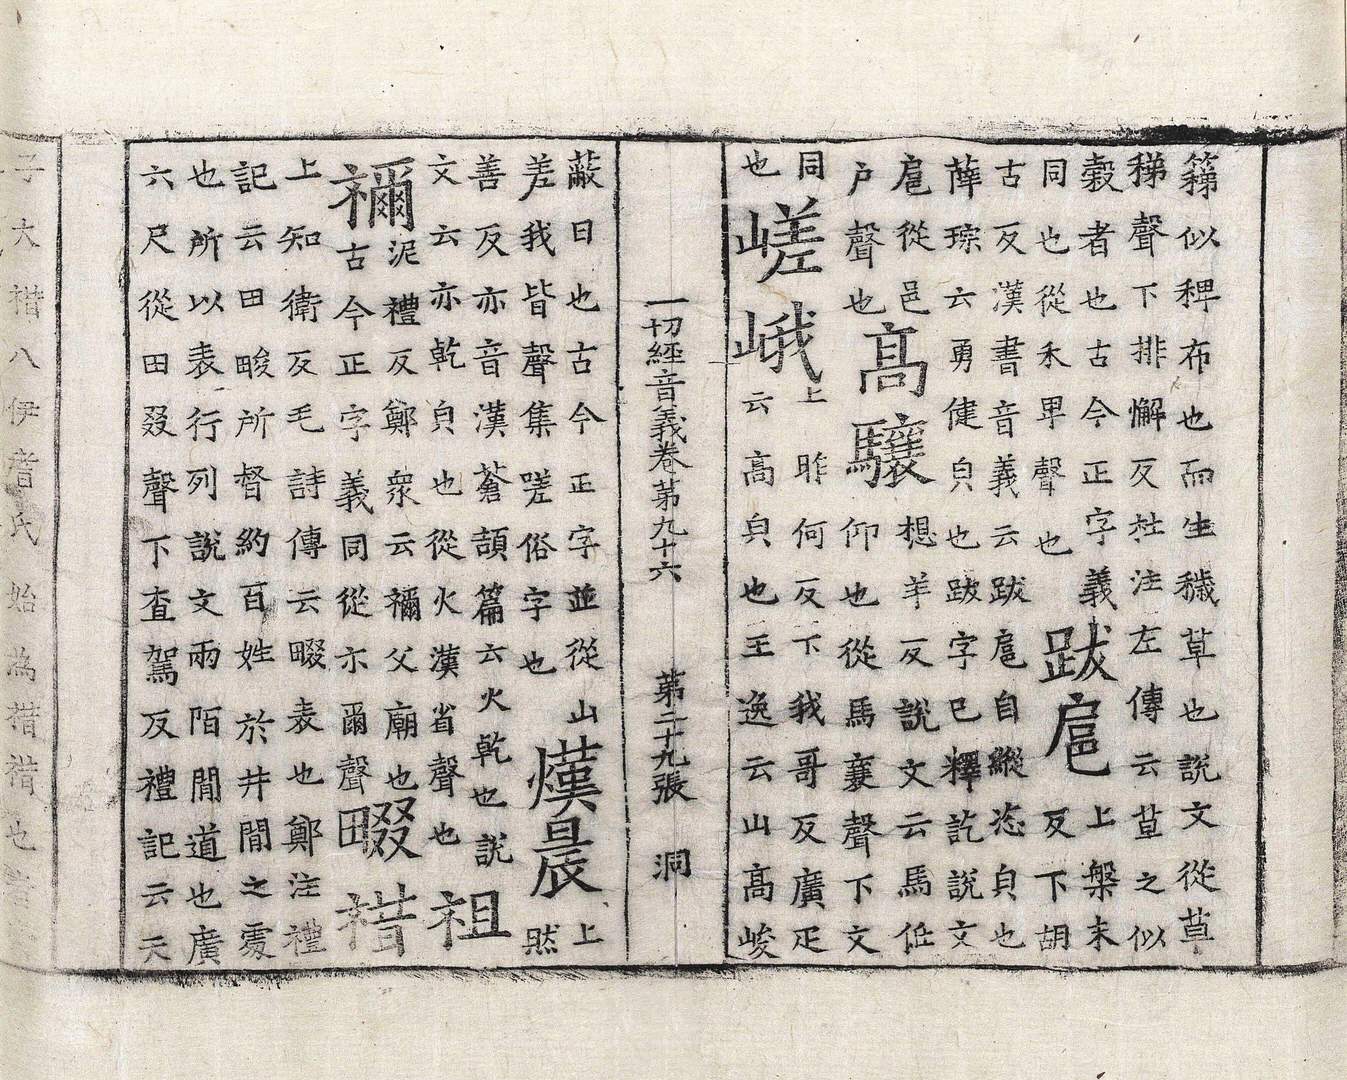 似稗布也而生穢草也說文從草
稊聲下排懈反杜注左傳云草之似
穀者也古今正字義
同也從禾卑聲也
跋扈
上槃末
反下胡
古反漢書音義云跋扈自縱恣皃也
薛琮云勇健皃也跋字已釋訖說文
扈從邑
戶聲也
髙驤
想羊反說文云馬低
仰也從馬襄聲下文
同
也
嵯峨
上昨何反下我哥反廣疋
云高皃也王逸云山高峻
一切經音義卷第九十六 第二十九張 洞
蔽日也古今正字並從山
差我皆聲集嗟俗字也
熯晨
上
然
善反亦音漢蒼頡篇云火乾也說
文云亦乾皃也從火漢省聲也
祖
禰
泥禮反鄭衆云禰父廟也
古今正字義同從示爾聲
畷䄍
上知衛反毛詩傳云畷表也鄭注禮
記云田畯所督約百姓於井間之處
也所以表行列說文兩陌間道也廣
六尺從田叕聲下查駕反禮記云天
子大䄍八伊耆氏始爲䄍䄍也